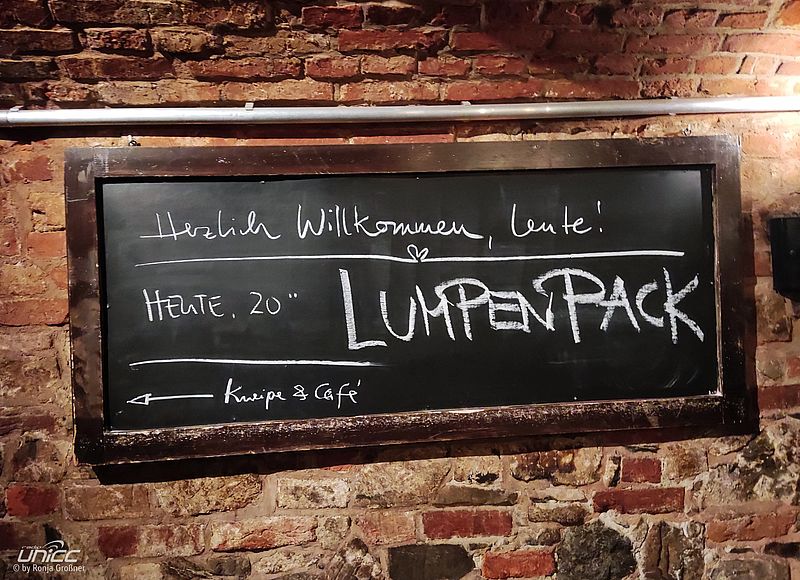 Herzlich Willkommen, Leute!
HEUTE, 20"
LUMPENPACK
Kneipe & Café
radio
UNiCC
© by Ronja Großner